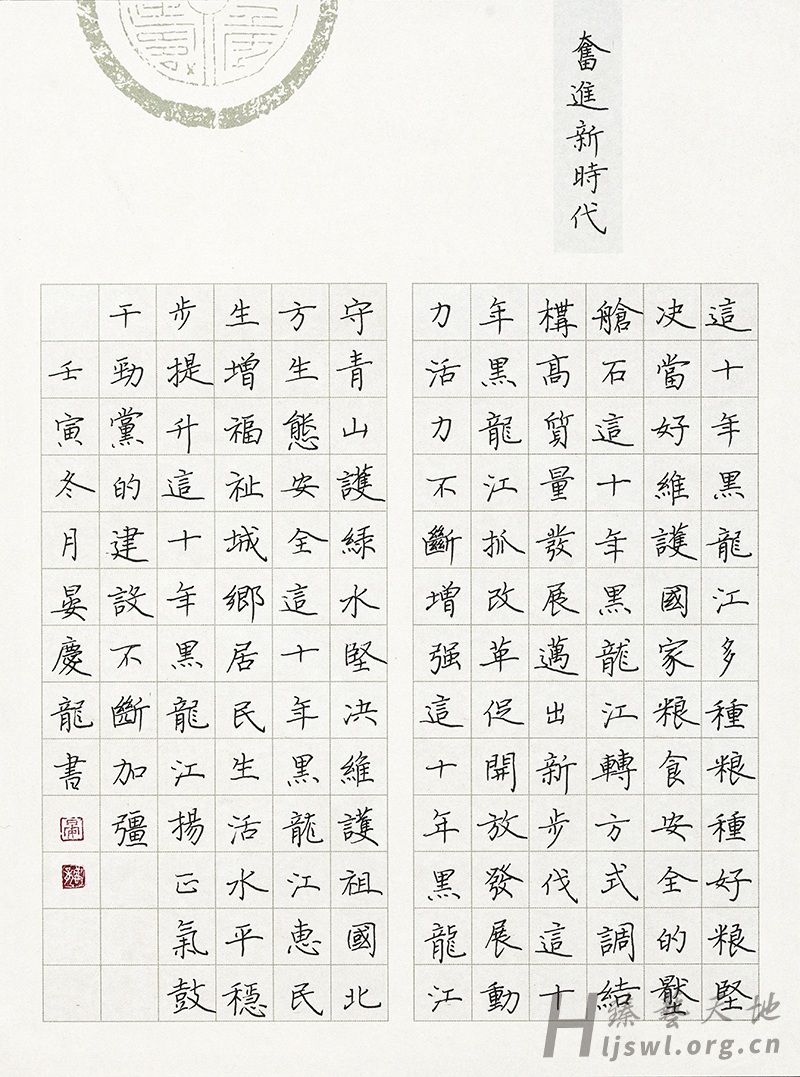 奮進新時代
這十年黑龍江多種粮種好粮堅
决當好維護國家粮食安全的壓
艙石這十年黑龍江轉方式調結
構髙質量發展邁出新步伐這十
年黑龍江抓改革促開放發展動
力活力不斷增强這十年黑龍江
守青山護緑水堅决維護祖國北
方生態安全這十年黑龍江惠民
生增福祉城鄉居民生活水平穩
步提升這十年黑龍江揚正氣鼓
干勁黨的建設不斷加彊
壬寅冬月晏慶龍書
臻藝天地
Hljswl.org.cn